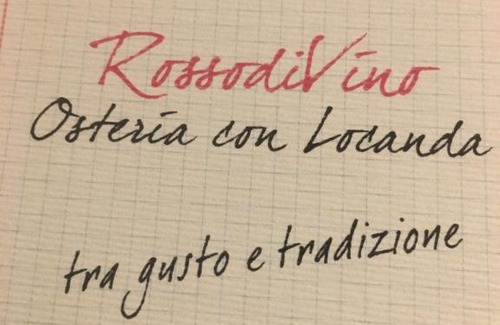 RossodiVino
Osteria con Locanda
tra gusto e tradizione